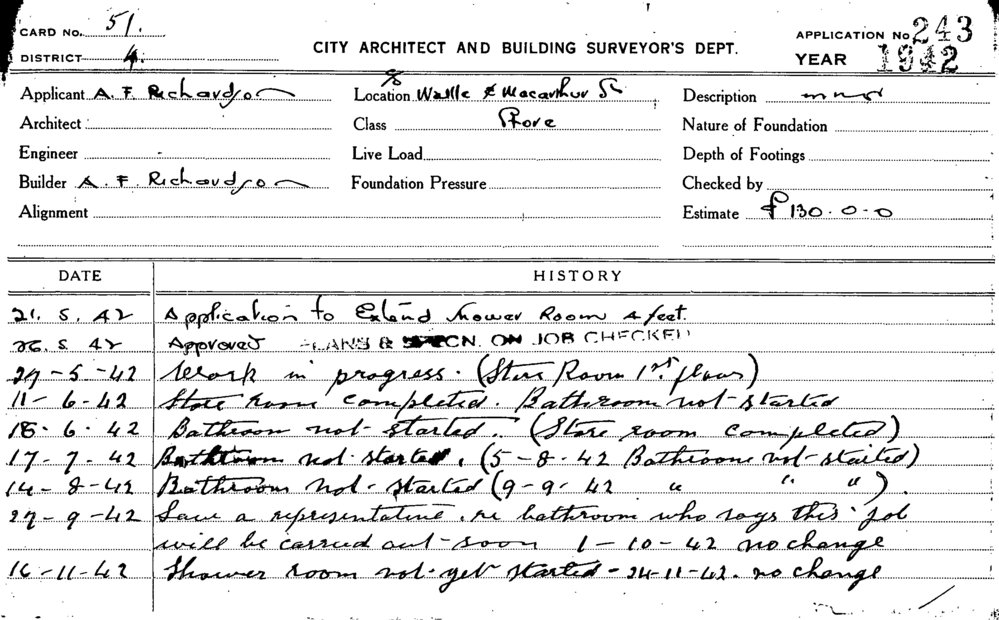 CARD No. 51.
DISTRICT 4.
CITY ARCHITECT AND BUILDING SURVEYOR'S DEPT.
APPLICATION No 243
YEAR 1942
Applicant A. F. Richardson
Location Wattle & Macarthur St
Description
Architect
Class Store
Nature of Foundation
Engineer
Live Load
Depth of Footings
Builder A. F. Richardson
Foundation Pressure
Checked by
Alignment
Estimate £130.0.0
DATE HISTORY
21. 5. 42 Application to Extend Shower Room 4 feet
26. 5 42 Approved PLANS & SPECN. ON JOB CHECKED
27-5-42 Work in progress. (Store Room 1st floor)
11-6-42 Store room completed. Bathroom not started
18.6.42 Bathroom not started. (Store room completed)
17-7-42 Bathroom not started. (5-8-42 Bathroom not started)
14-8-42 Bathroom not started (9-9-42 " " ").
29-9-42 Saw a representative. re bathroom who says this job
will be carried out soon 1-10-42 no change
16-11-42 Shower room not yet started - 24-11-42. no change